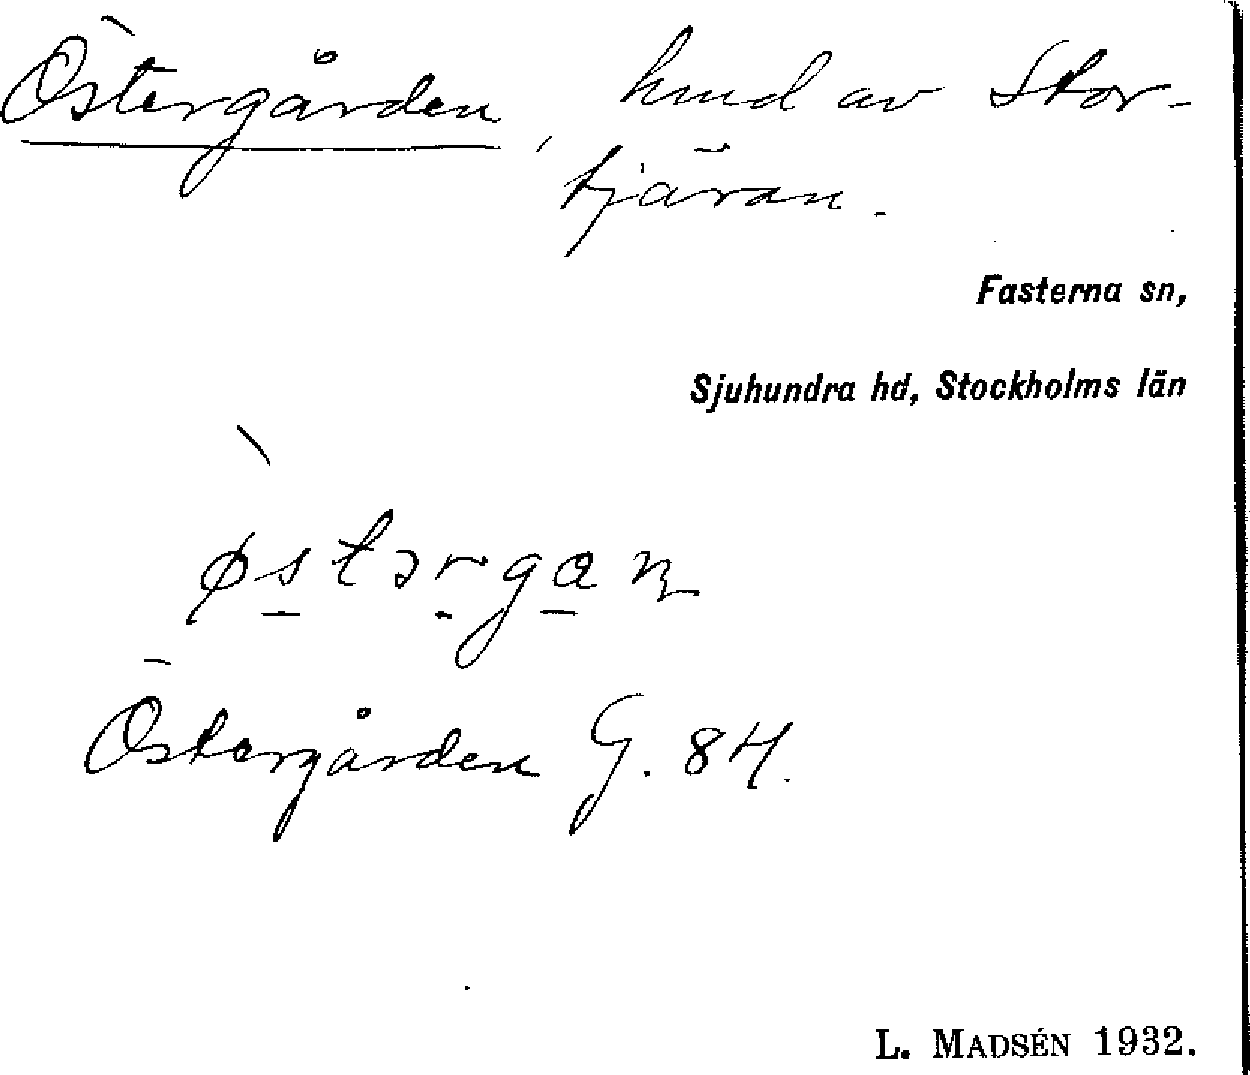 Östergården, hmd av Stor-
tjäran.
Fasterna sn,
Sjuhundra hd, Stockholms län
Östergården G. 84.
L. MADSÉN 1932.